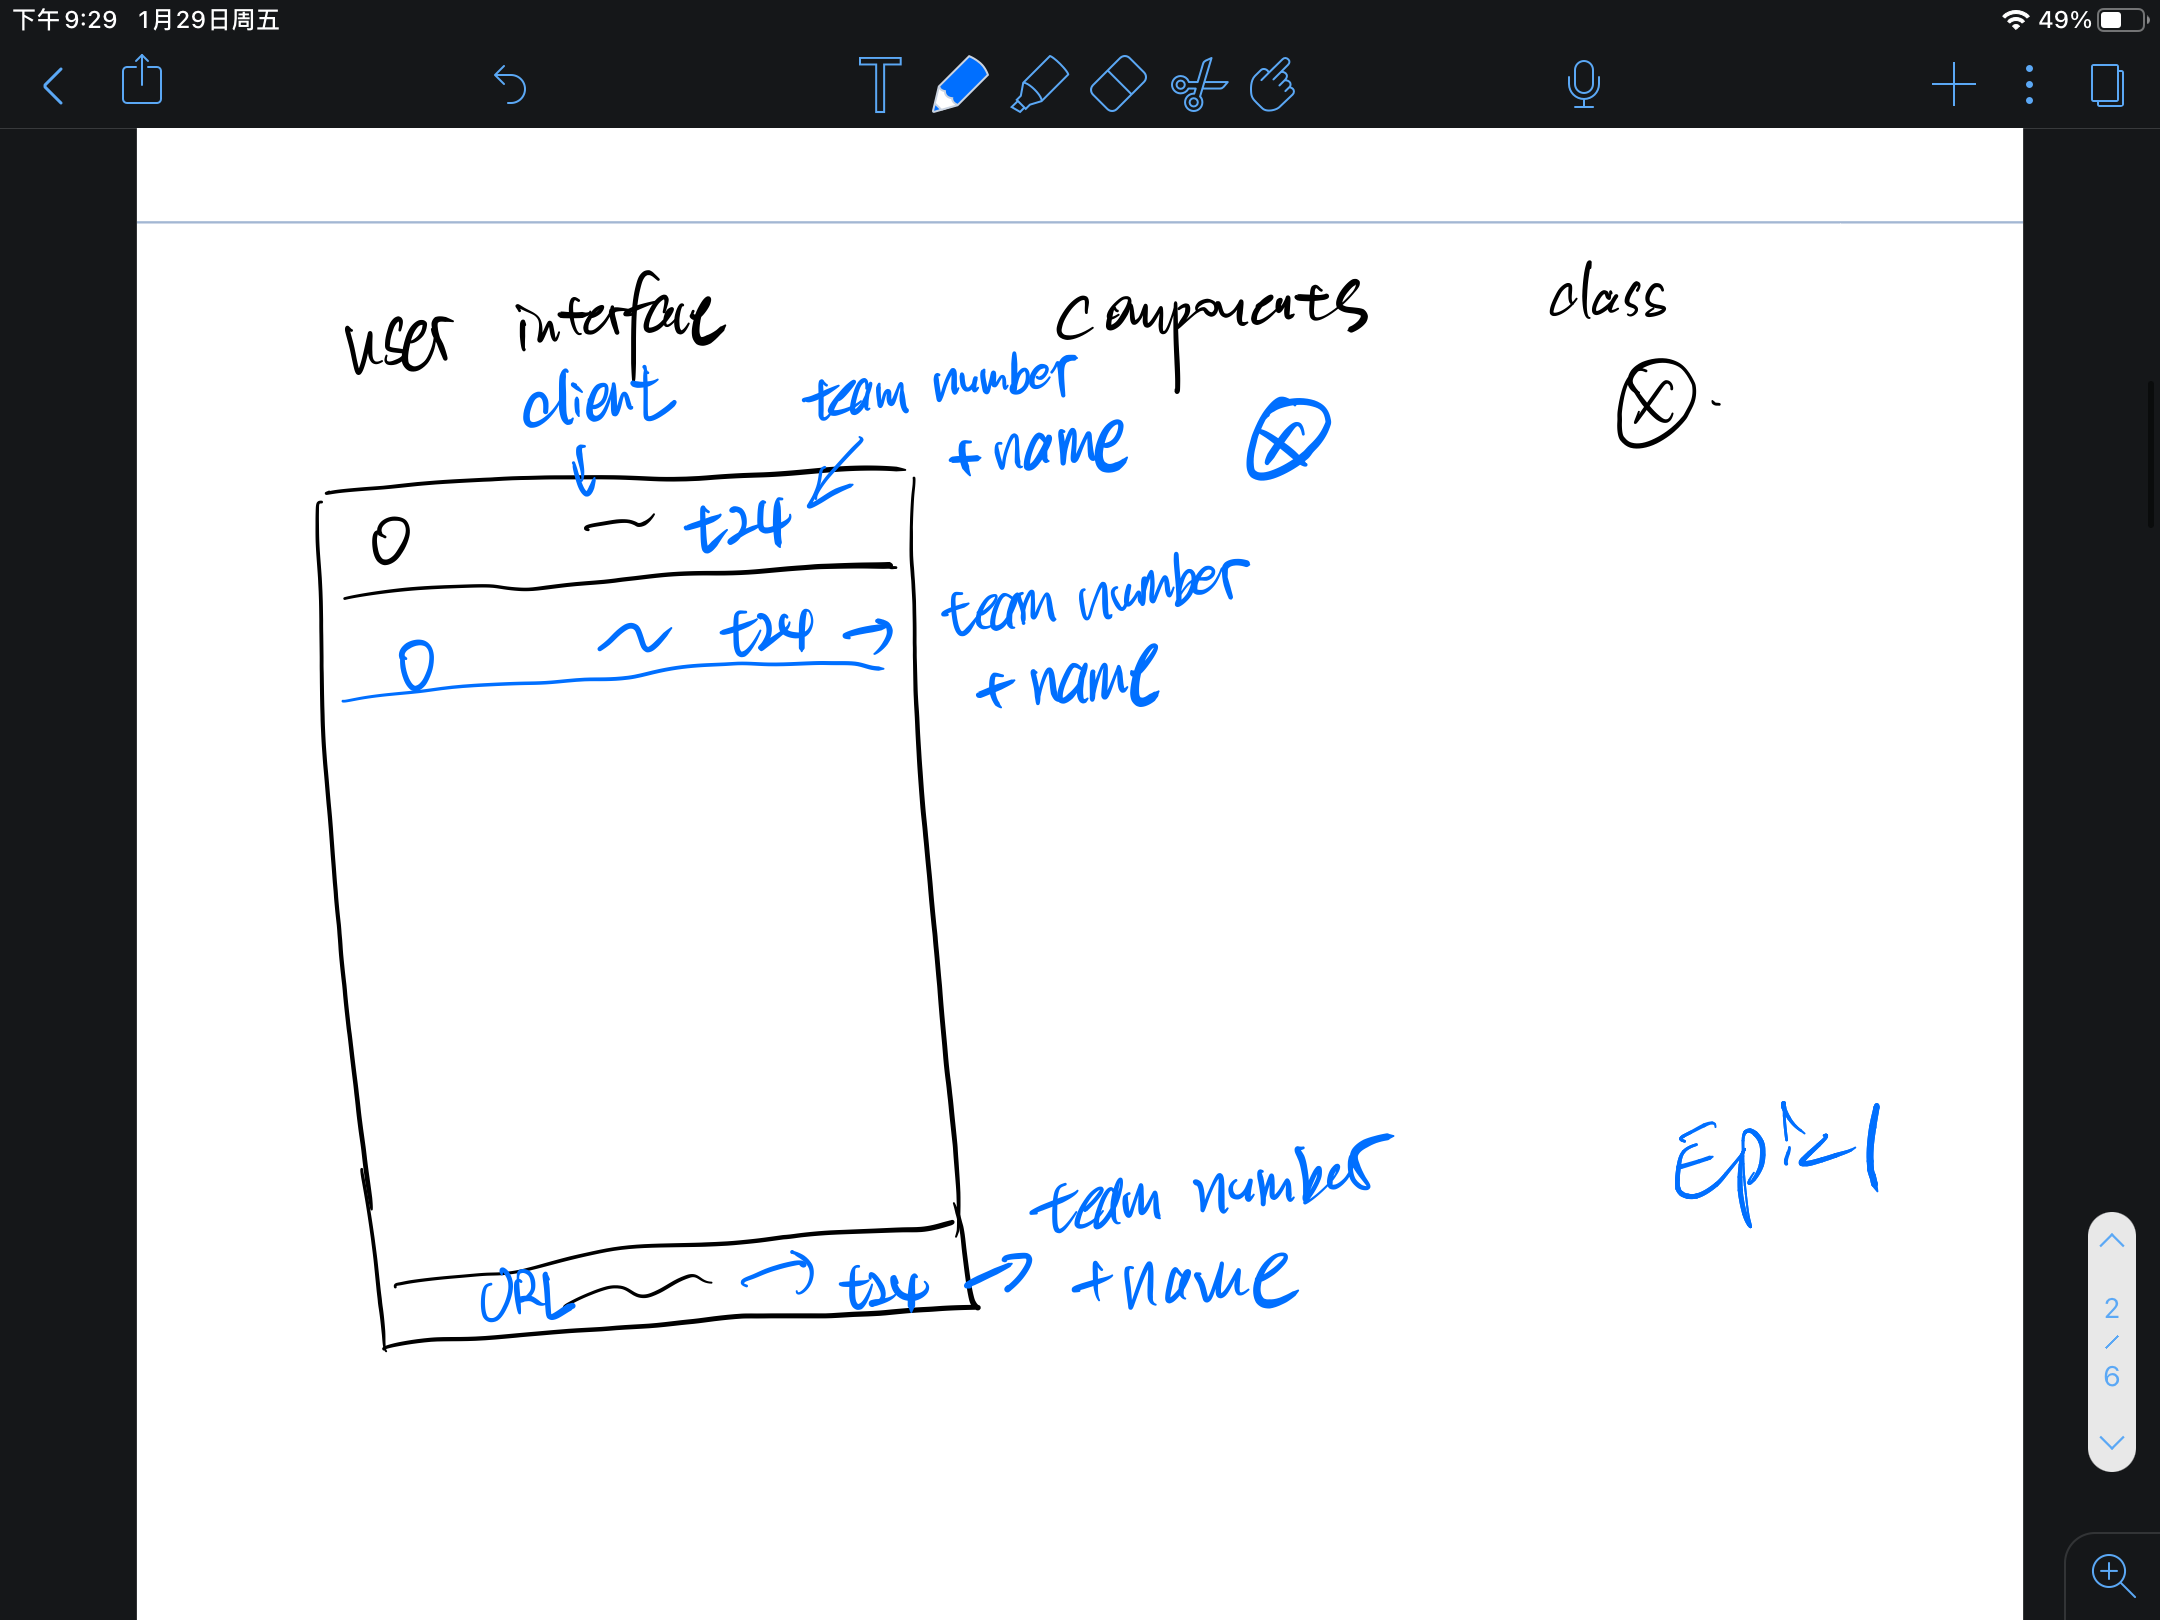 下午9:29 1月29日周五
49%
T
user interface components class
client
team number
+ name
t24
t24
team number
+ name
team number
URL t24
+ name
2
/
6